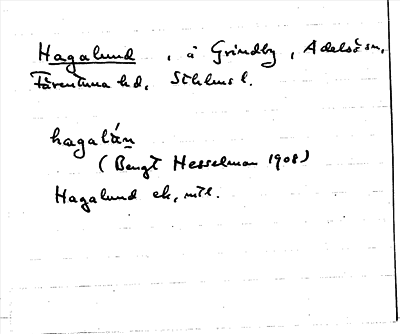 Hagalund, å Grindby, Adelsö sn,
Färentuna hd, Sthlms l.
hagalún
(Bengt Hesselman 1908)
Hagalund ek,